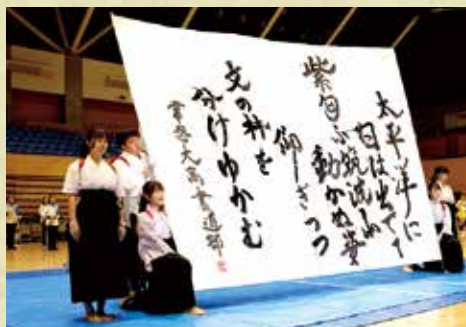 太平洋に
日は出でて
紫匂ふ筑波山
動かぬ姿
仰ぎつつ
文の林を
分けゆかむ
常磐大高書道部